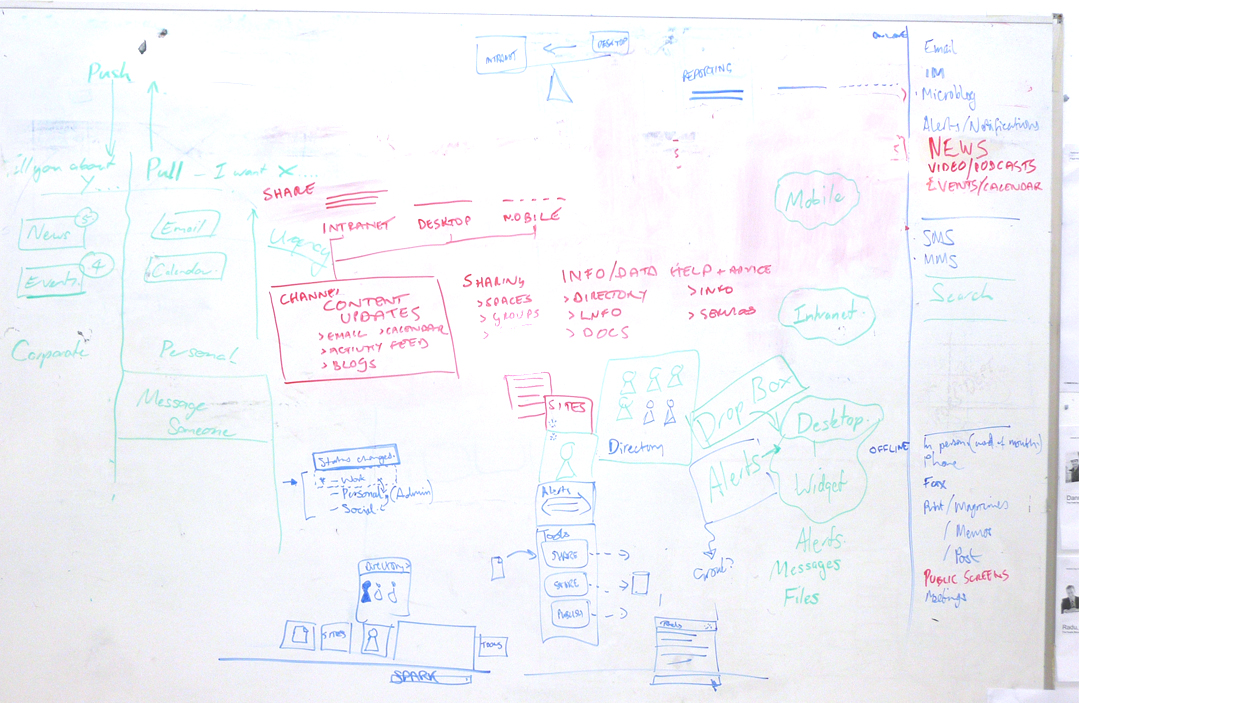 INTRANET
DESKTOP
REPORTING
ONLINE
Email
IM
Microblog
Alerts/Notifications
NEWS
VIDEO/PODCASTS
EVENTS/CALENDAR
SMS
MMS
Search
Push
Pull - I want X...
Y...
News
5
Events
4
Email
Calendar
Urgency
Corporate
Personal
Message
Someone
SHARE
INTRANET
DESKTOP
MOBILE
CHANNEL
CONTENT
UPDATES
> EMAIL > CALENDAR
> ACTIVITY FEED
> BLOGS
SHARING
> SPACES
> GROUPS
>
INFO/DATA
> DIRECTORY
> INFO
> DOCS
HELP + ADVICE
> INFO
> SERVICES
Mobile
Intranet
Drop Box
Desktop
Widget
Alerts
Alerts
Messages
Files
SITES
Directory
Alerts
Tools
SHARE
STORE
PUBLISH
Status changed.
- Work
- Personal (Admin)
- Social
DIRECTORY
SITES
TOOLS
SPARK
OFFLINE
In person
Phone
Fax
Print/Magazines
/Memos
/Post
PUBLIC SCREENS
Meetings
Radu